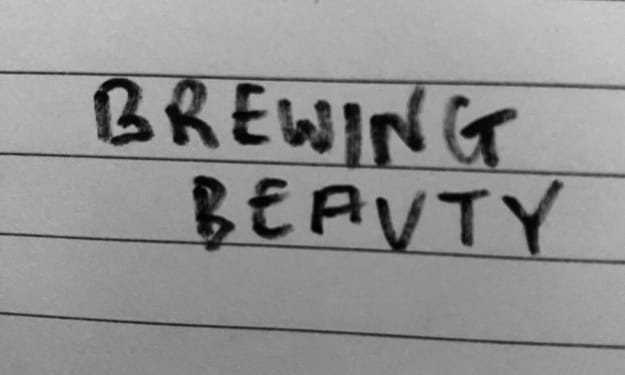 BREWING
BEAUTY